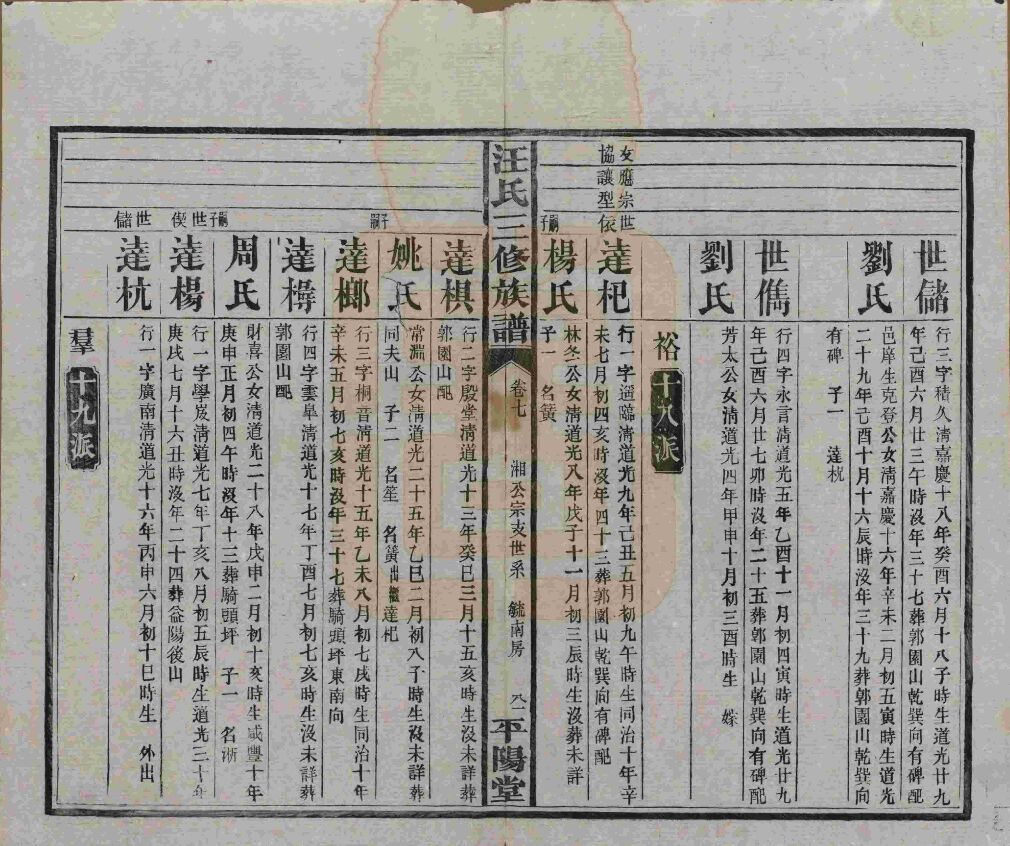 世儲
行三字積久清嘉慶十八年癸酉六月十八子時生道光廿九
年己酉六月廿三午時沒年三十七葬郭園山乾巽向有碑配
劉氏
邑庠生克登公女清嘉慶十六年辛未二月初五寅時生道光
二十九年己酉十月十六辰時沒年三十九葬郭園山乾巽向
有碑 子一 達杭
世儁
行四字永言清道光五年乙酉十一月初四寅時生道光廿九
年己酉六月廿七卯時沒年二十五葬郭園山乾巽向有碑配
劉氏
芳太公女清道光四年甲申十月初三酉時生 嫁
裕 十八派
友應宗世
協讓型依
達杞
行一字遥臨清道光九年己丑五月初九午時生同治十年辛
未七月初四亥時沒年四十三葬郭園山乾巽向有碑配
楊氏
林冬公女清道光八年戊子十一月初三辰時生沒葬未詳
嗣子一 名簧
汪氏三修族譜
卷七
湘公宗支世系 毓南房 八一
平陽堂
達椇
行二字殿堂清道光十三年癸巳三月十五亥時生沒未詳葬
郭園山配
姚氏
常淵公女清道光二十五年乙巳二月初八子時生沒未詳葬
同夫山 子二 名笙 名簧出繼達杞
嗣子
達榔
行三字桐音清道光十五年乙未八月初七戌時生同治十年
辛未五月初七亥時沒年三十七葬騎頭坪東南向
達樳
行四字雲皐清道光十七年丁酉七月初七亥時生沒未詳葬
郭園山配
周氏
財喜公女清道光二十八年戊申二月初十亥時生咸豐十年
庚申正月初四午時沒年十三葬騎頭坪 子一 名淅
世偰嗣子
達楊
行一字學成清道光七年丁亥八月初五辰時生道光三十年
庚戌七月十六丑時沒年二十四葬益陽後山
世儲
達杭
行一字廣南清道光十六年丙申六月初十巳時生 外出
羣 十九派